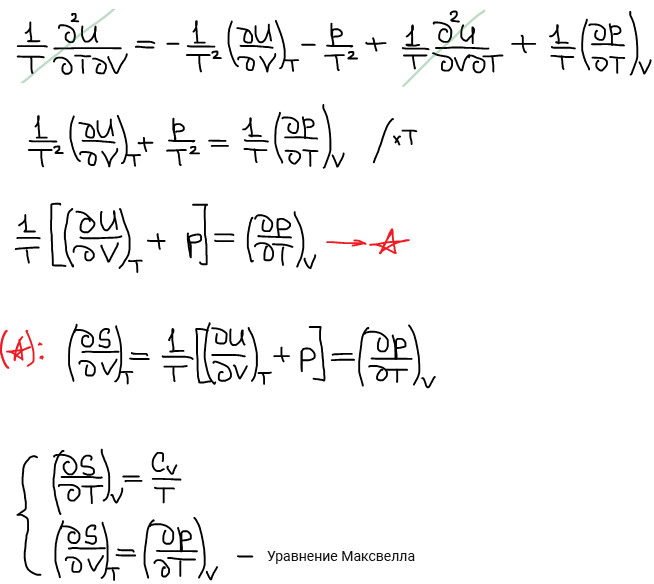 1/T ∂²U/∂T∂V = - 1/T² (∂U/∂V)_T - p/T² + 1/T ∂²U/∂V∂T + 1/T (∂p/∂T)_V
1/T² (∂U/∂V)_T + p/T² = 1/T (∂p/∂T)_V /×T
1/T [(∂U/∂V)_T + p] = (∂p/∂T)_V → ☆
(☆): (∂S/∂V)_T = 1/T [(∂U/∂V)_T + p] = (∂p/∂T)_V
{ (∂S/∂T)_V = C_V/T
(∂S/∂V)_T = (∂p/∂T)_V – Уравнение Максвелла